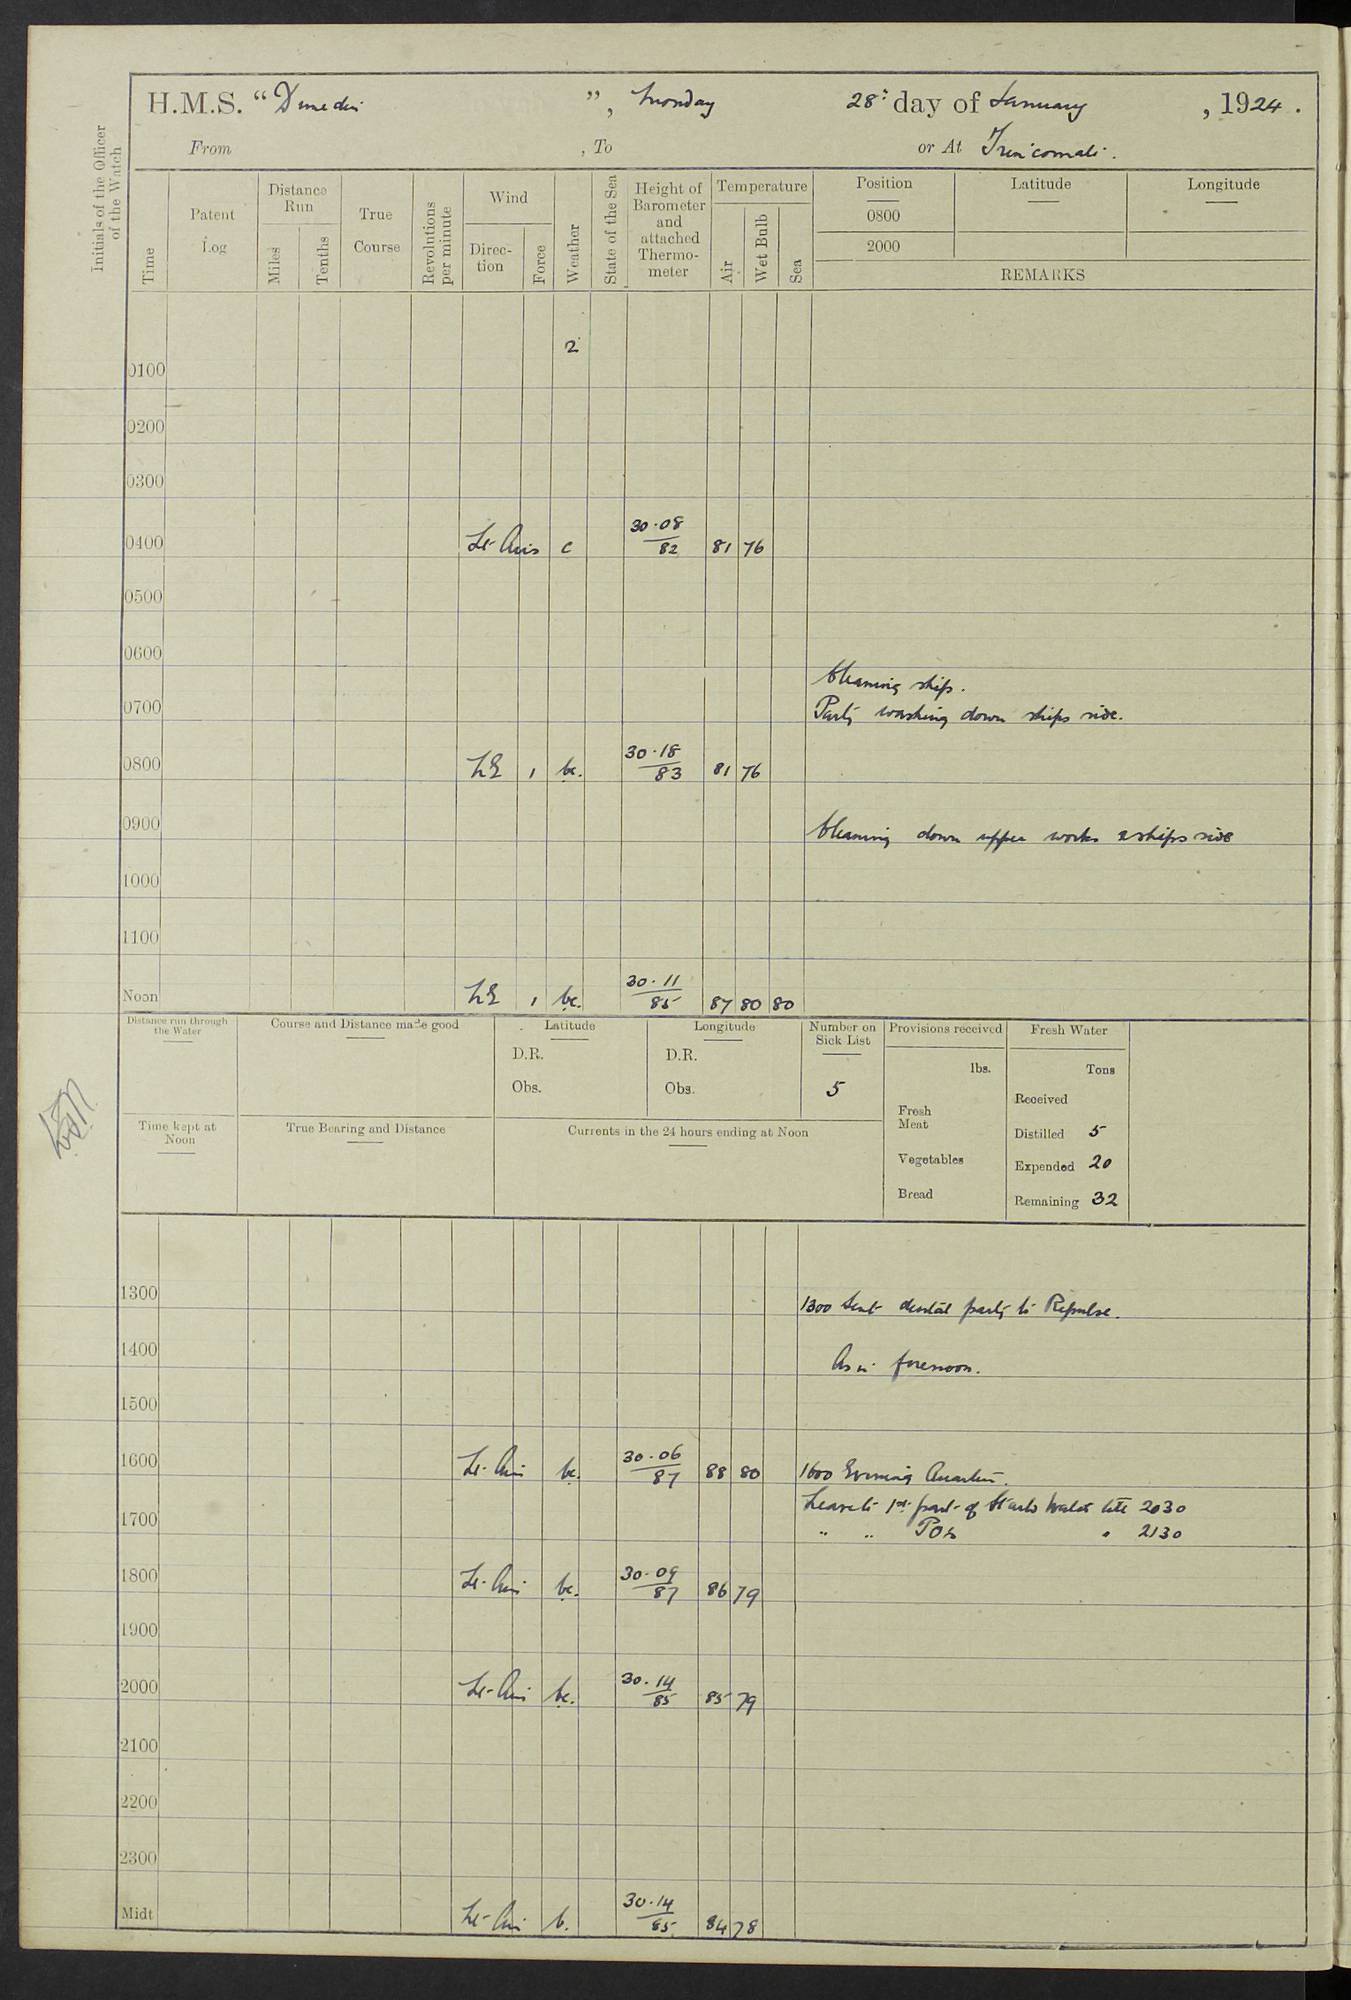 H.M.S. “Dunedin ”, Monday 28th day of January, 1924.
From , To or At Trincomali.
Initials of the Officer of the Watch
Time
Patent Log
Distance Run
Miles
Tenths
True Course
Revolutions per minute
Wind
Direction
Force
Weather
State of the Sea
Height of Barometer and attached Thermometer
Temperature
Air
Wet Bulb
Sea
Position Latitude Longitude
0800
2000
REMARKS
2
0100
0200
0300
0400 Lt Airs c 30.08/82 81 76
0500
0600
Cleaning ship.
0700 Party washing down ships side.
0800 NE 1 bc. 30.18/83 81 76
0900 Cleaning down upper works & ships side
1000
1100
Noon NE 1 bc. 30.11/85 87 80 80
Distance run through the Water
Course and Distance made good
Latitude
D.R.
Obs.
Longitude
D.R.
Obs.
Number on Sick List
5
Provisions received
lbs.
Fresh Meat
Vegetables
Bread
Fresh Water
Tons
Received
Distilled 5
Expended 20
Remaining 32
Time kept at Noon
True Bearing and Distance
Currents in the 24 hours ending at Noon
1300 1300 Sent dental party to Repulse.
1400 As in forenoon.
1500
1600 Lt Airs bc. 30.06/87 88 80 1600 Evening Quarters.
Leave to 1st part of Starbd Watch till 2030
1700 " " POs " 2130
1800 Lt Airs bc. 30.09/87 86 79
1900
2000 Lt Airs bc. 30.14/85 85 79
2100
2200
2300
Midt Lt Airs b. 30.14/85 84 78